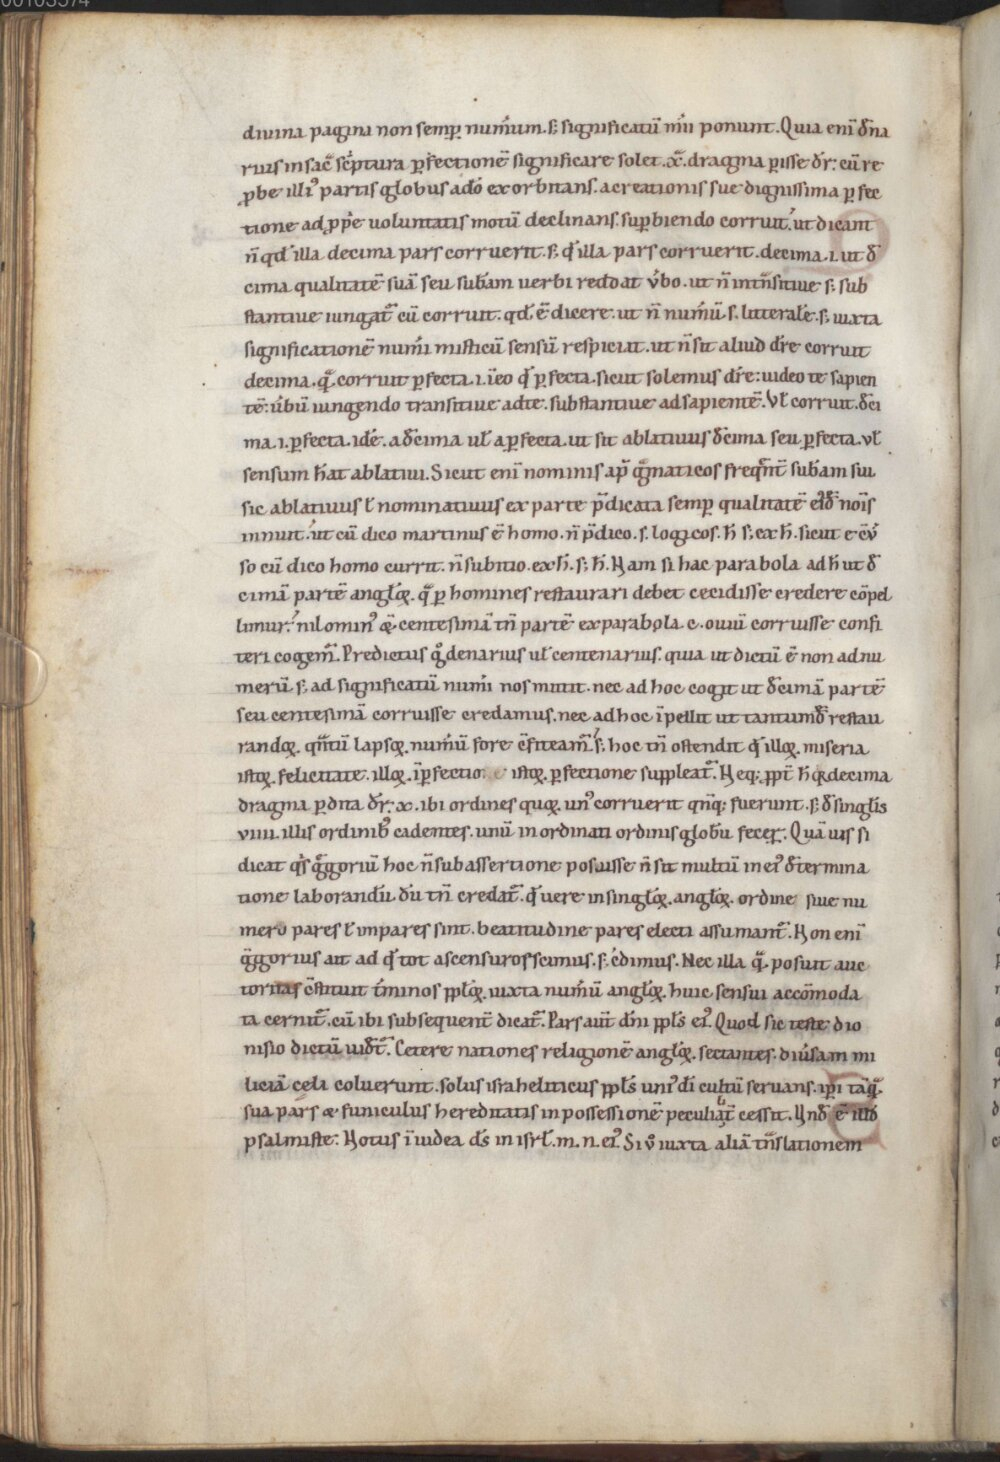 00103574
divina pagina non semꝑ num̅um. s; significatū nūi ponunt. Quia eni̅ den̅a
rius in sac̅ sc̅ptura ꝑfectione̅ significare solet. x̅. dragma ꝑisse dr̅: cu̅ re
ꝓbe illiꝰ partis globus ado̅ exorbitans. a creationis sue dignissima ꝑfec
tione ad ꝓp̅e voluntatis motu̅ declinans. suꝑbiendo corruit. ut dicant
n̅ qd̅ illa decima pars corruerit. s; qd̅ illa pars corruerit. decima .i. ut de
cima qualitate̅ sua̅ seu sub̅am uerbi reddat u̅bo. ut n̅ int̅nsitiue s; sub
stantiue iungat᷑ cu̅ corruit. qd̅ e̅ dicere. ut n̅ num̅u̅ .s. litterale̅. s; iuxta
significatione̅ num̅i misticu̅ sensu̅ respiciat. ut n̅ sit aliud dr̅e corruit
decima. q̅. corruit ꝑfecta .i. i̅eo q̅ ꝑfecta. sicut solemus dr̅e: uideo te sapien
te̅: u̅bu̅ iungendo transitiue ad te. substantiue ad sapiente̅. Vl̅ corruit. deci
ma .i. ꝑfecta. ide̅. a decima ul̅ a ꝑfecta. ut sit ablatiuus decima seu ꝑfecta. vl̅
sensum h̅at ablatiui. Sicut eni̅ nominis ap̅ g̅maticos freq̅nt̅ sub̅am sui
sic ablatiuus l̅ nominatiuus ex parte p̅dicata semꝑ qualitate̅ eiꝰd̅ no̅is
innuit. ut cu̅ dico martinus e̅ homo. n̅ p̅dico .s. logicos. h̅ s; ex h̅. sicut e e̅ú
so cu̅ dico homo currit. n̅ subitio. ex h̅. s; h̅. Nam si hac parabola ad h̅ ut de
cima̅ parte̅ anglo̅ꝝ. q̅ ꝑ homines restaurari debet cecidisse credere co̅pel
limur: nilominꝰ &. centesima̅ tn̅ parte̅ ex parabola .c. ouiu̅ corruisse confi
teri cogem᷑. Predictus g̊ denarius ul̅ centenarius. quia ut dictu̅ e̅ non ad nu
meru̅ s; ad significatu̅ num̅i nos mittit. nec ad hoc cogit ut decima̅ parte̅
seu centesima̅ corruisse credamus. nec ad hoc i̅pellit ut tantumd̅ restau
randoꝝ. qn̅tu̅ lapsoꝝ. num̅u̅ fore c̅fiteam᷑. s; hoc tn̅ ostendit q̅ illoꝝ. miseria
istoꝝ. felicitate. illoꝝ. i̅ꝑfectio istoꝝ. ꝑfectione suppleat᷑. Neq; ppt̅ h̅ qd̅ decima
dragma ꝑdita dr̅: x. ibi ordines quoꝝ. unꝰ corruerit qn̅q; fuerunt. s; de singlis
viiii. illis ordinibꝰ cadentes. unu̅ inordinati ordinis glob̅u fecer̅. Qua̅ uis si
dicat qs̅ g̅goriu̅ hoc n̅ sub assertione posuisse n̅ sit multu̅ in eiꝰ determina
tione laborandu̅ du̅ tn̅ credat᷑. q̅ uere in singloꝝ. anglo̅ꝝ. ordine siue nu
mero pares l̅ impares sint. beatitudine pares electi assumant᷑. Non eni̅
g̅gorius ait ad q̅ tot ascensuros scimus. s; c̅dimus. Nec illa q̅. posuit auc
toritas c̅stituit t̅minos pploꝝ. iuxta num̅u̅ anglo̅ꝝ. huic sensui acco̅moda
ta cernit᷑. cu̅ ibi subsequent̅ dicat᷑. Pars aut̅ dn̅i ppl̅s eiꝰ. Quod sic teste dio
nisio dictu̅ uidet᷑. Cetere nationes religione̅ anglo̅ꝝ. sectantes. diu̅sam mi
licia̅ celi coluerunt. solus israheliticus ppl̅s uniꝰ di̅ cultu̅ seruans. ip̅i ta̅q̅.
sua pars & funiculus hereditatis in possessione̅ peculiat̅ cessit. Vnd̅ e̅ illd̅
psalmiste: Notus i̅ iudea d̅s in isrl̅ .m. n. eiꝰ. Si u̅ iuxta alia̅ tn̅slationem